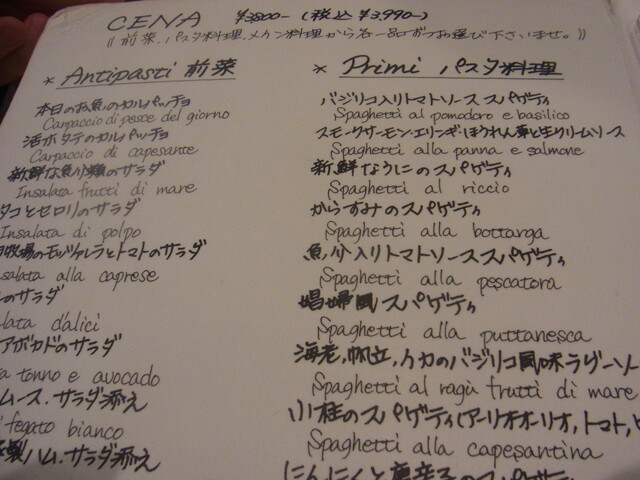 CENA ¥3800- (税込 ¥3,990-)
《前菜、パスタ料理、メイン料理から各一品ずつお選び下さいませ。》
* Antipasti 前菜
本日のお魚のカルパッチョ
Carpaccio di pesce del giorno
活ホタテのカルパッチョ
Carpaccio di capesante
新鮮な魚介類のサラダ
Insalata frutti di mare
タコとセロリのサラダ
Insalata di polpo
牧場のモッツァレラとトマトのサラダ
salata alla caprese
のサラダ
lata d'alici
アボカドのサラダ
a tonno e avocado
ムース、サラダ添え
fegato bianco
製ハム、サラダ添え
* Primi パスタ料理
バジリコ入りトマトソース スパゲティ
Spaghetti al pomodoro e basilico
スモークサーモン・エリンギ・ほうれん草と生クリームソース
Spaghetti alla panna e salmone
新鮮なうにのスパゲティ
Spaghetti al riccio
からすみのスパゲティ
Spaghetti alla bottarga
魚介入りトマトソーススパゲティ
Spaghetti alla pescatora
娼婦風スパゲティ
Spaghetti alla puttanesca
海老、帆立、イカのバジリコ風味ラグーソー
Spaghetti al ragù frutti di mare
小柱のスパゲティ(アーリオオーリオ,トマト,
Spaghetti alla capesantina
にんにくと唐辛子のスパゲティ